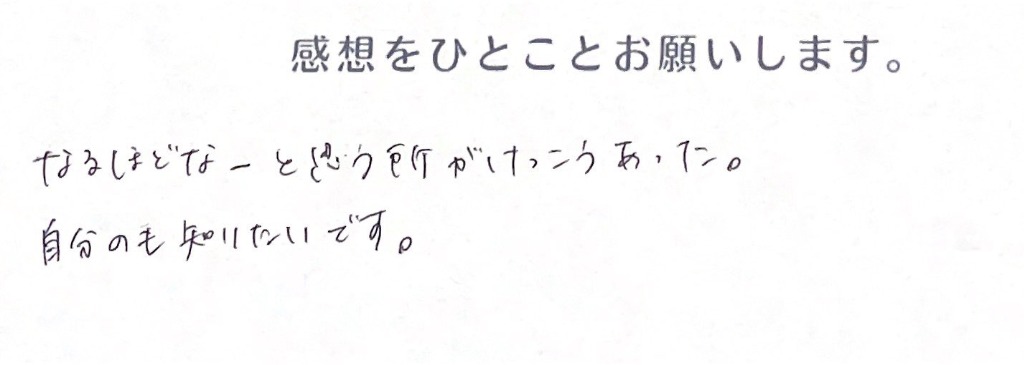 感想をひとことお願いします。
なるほどなーと思う所がけっこうあった。
自分のも知りたいです。